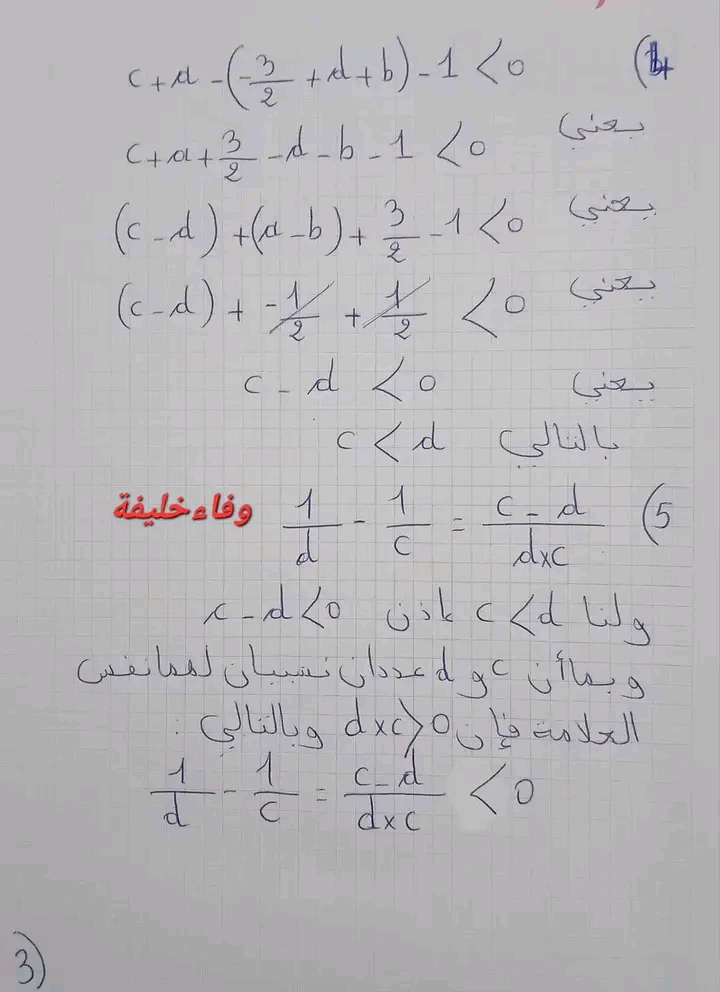 4) c+a-(-3/2+d+b)-1<0
يعني c+a+3/2-d-b-1<0
يعني (c-d)+(a-b)+3/2-1<0
يعني (c-d)+-1/2+1/2<0
يعني c-d<0
بالتالي c<d
5) 1/d-1/c=c-d/dxc
وفاء خليفة
ولنا c<d إذن c-d<0
وبما أن c و d عددان نسبيان لهما نفس
العلامة فإن dxc>0 وبالتالي :
1/d-1/c=c-d/dxc<0
3)